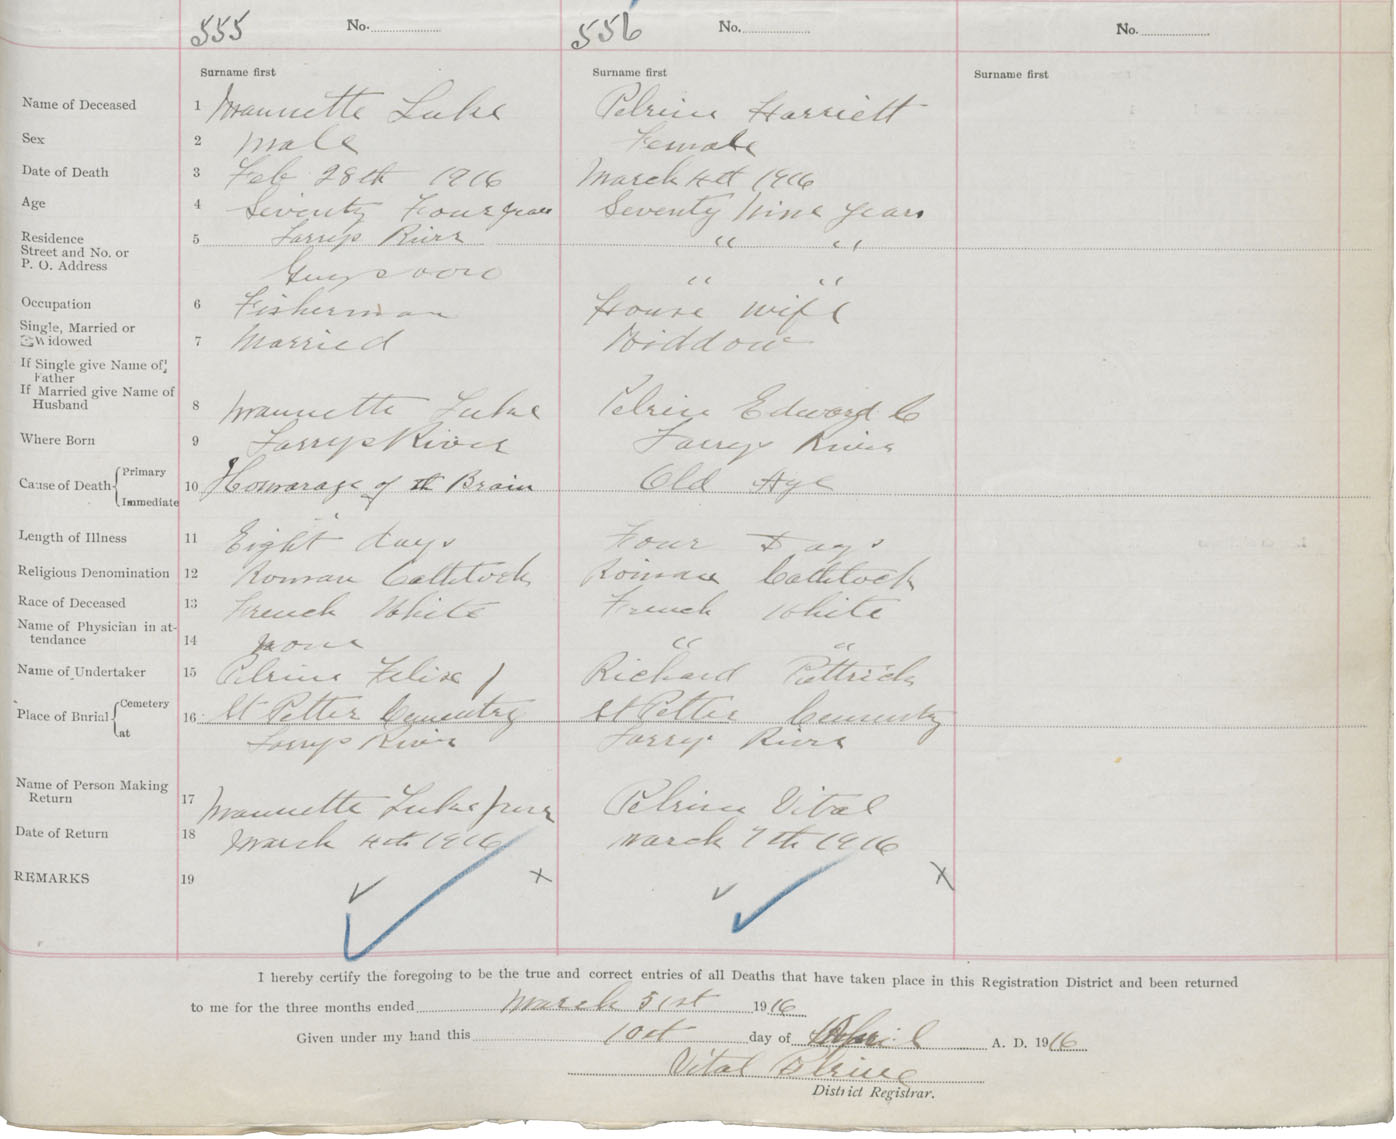 555 No. 556 No. No.
Surname first Surname first Surname first
Name of Deceased 1 Mannette Luke Pelrine Harriett
Sex 2 Male Female
Date of Death 3 Feb 28th 1916 March 4th 1916
Age 4 Seventy Four years Seventy Nine years
Residence 5 Larrys River " "
Street and No. or
P. O. Address Guysboro " "
Occupation 6 Fisherman House wife
Single, Married or
Widowed 7 Married Widdow
If Single give Name of
Father
If Married give Name of
Husband 8 Mannette Luke Pelrine Edward C
Where Born 9 Larrys River Larrys River
Cause of Death { Primary
Immediate 10 of th Brain Old Age
Length of Illness 11 Eight days Four Days
Religious Denomination 12 Roman Cathlock Roman Cathlock
Race of Deceased 13 French White French White
Name of Physician in at-
tendance 14 None " "
Name of Undertaker 15 Pelrine Felix Richard Pettrick
Place of Burial { Cemetery
at 16 St Petter Cementry St Petter Cementry
Larrys River Larrys River
Name of Person Making
Return 17 Mannette Luke Pelrine Vital
Date of Return 18 March 4th 1916 March 7th 1916
REMARKS 19
I hereby certify the foregoing to be the true and correct entries of all Deaths that have taken place in this Registration District and been returned
to me for the three months ended March 31st 1916
Given under my hand this 10th day of April A. D. 1916
Vital Pelrine
District Registrar.